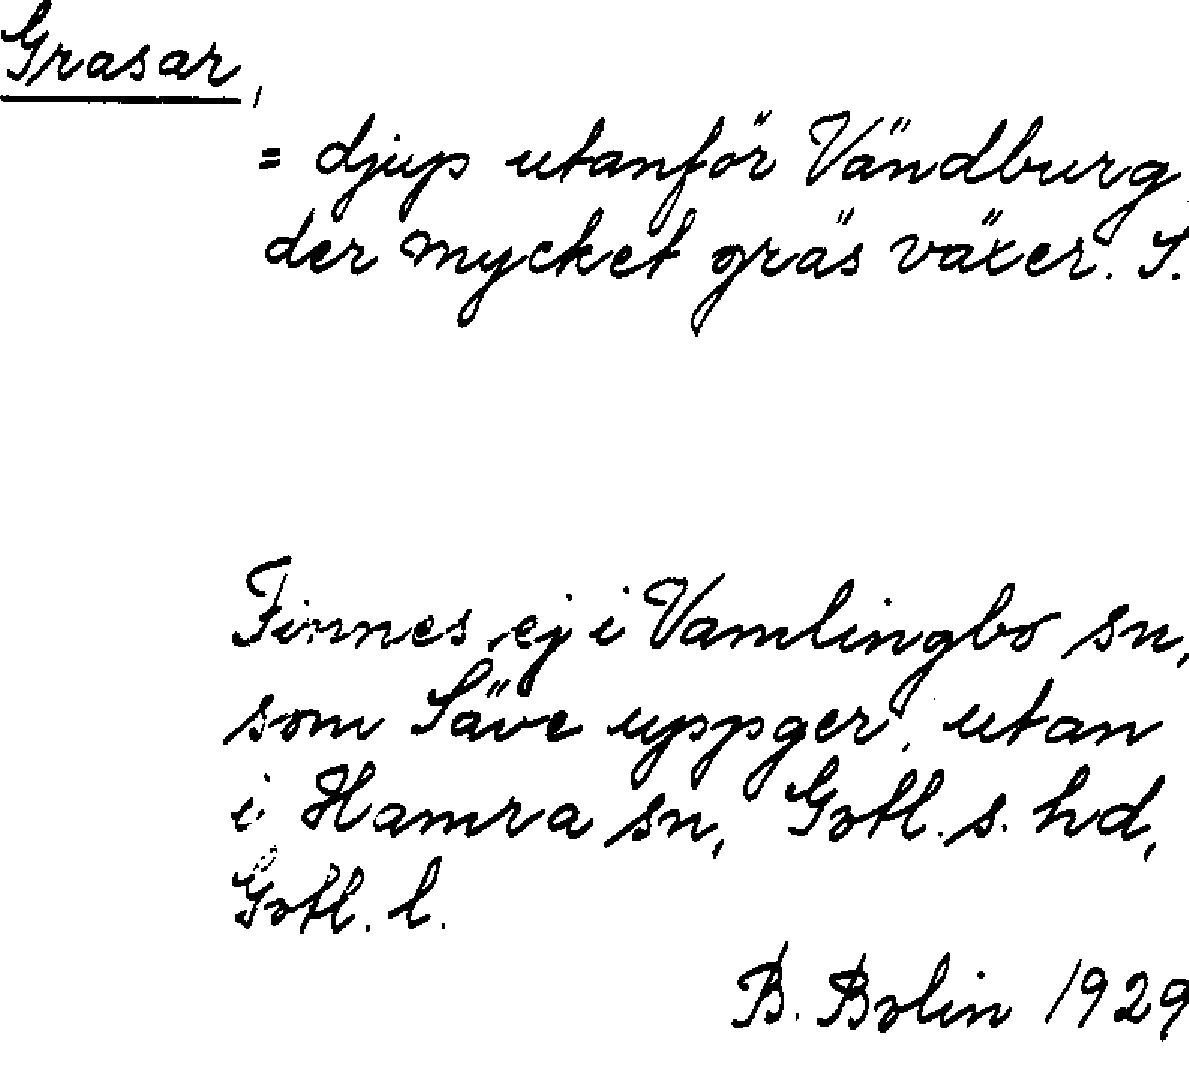 Grasar,
= djup utanför Vändburg
der mycket gräs växer. S.
Finnes ej i Vamlingbo sn,
som Säve uppger, utan
i Hamra sn, Gotl. s. hd,
Gotl. l.
B. Bolin 1929